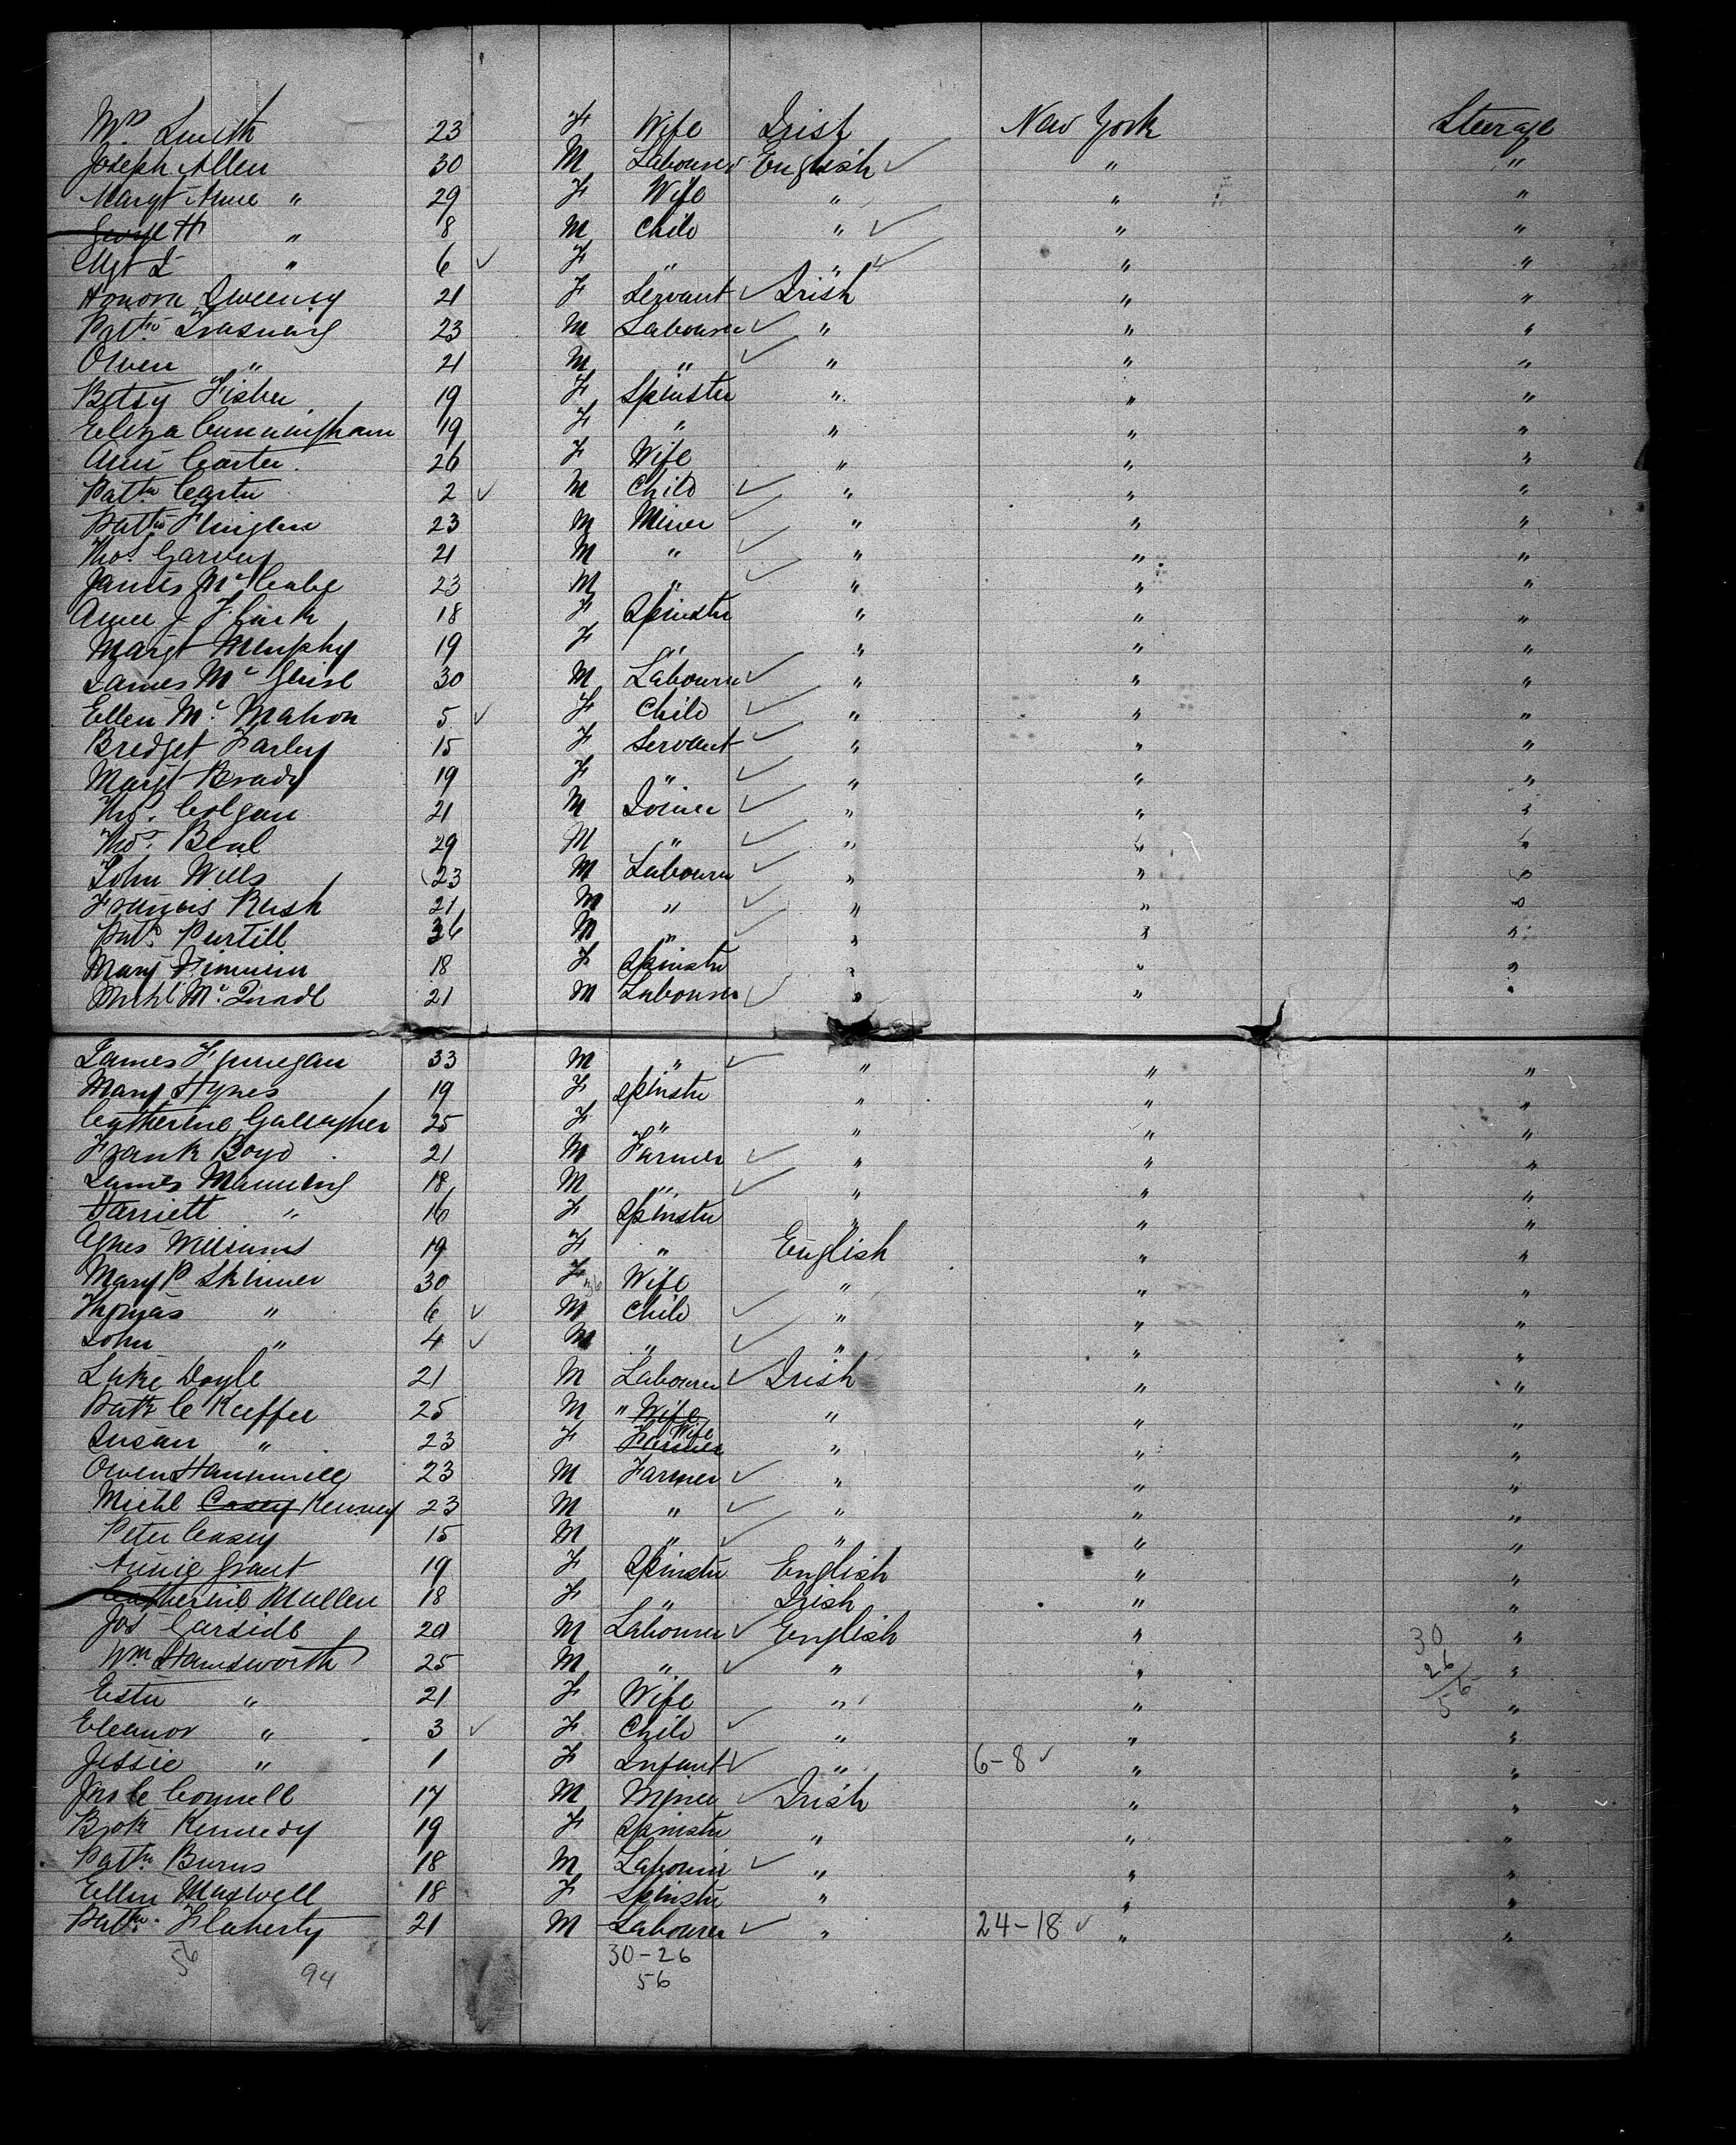 Mrs Smith 23 F Wife Irish New York Steerage
Joseph Allen 30 M Labourer English " "
Margt Anne " 29 F Wife " " "
George H " 8 M Child " " "
Mgt " 6 F " " " "
Honora Sweeney 21 F Servant Irish " "
Pattk 23 M Labourer " " "
Owen " 21 M " " " "
Betsy Fisher 19 F Spinster " " "
Eliza Cunningham 19 F " " " "
Ann Carter 26 F Wife " " "
Pattk Carter 2 M Child " " "
Pattk 23 M Miner " " "
Thos. Garvey 21 M " " " "
James Mc Cabe 23 M " " " "
Anne J 18 F Spinster " " "
Margt Murphy 19 F " " " "
James Mc 30 M Labourer " " "
Ellen Mc Mahon 5 F Child " " "
Bridget Farley 15 F Servant " " "
Margt Brady 19 F " " " "
Thos. Colgan 21 M Joiner " " "
Thos. Beal 29 M " " " "
John Wills 23 M Labourer " " "
Francis Rush 21 M " " " "
Patk Purtill 36 M " " " "
Mary 18 F Spinster " " "
Michl Mc 21 M Labourer " " "
James Finnegan 33 M " " " "
Mary Hynes 19 F Spinster " " "
Catherine Gallagher 25 F " " " "
Frank Boyd 21 M Farmer " " "
James Manning 18 M " " " "
Harriett " 16 F Spinster " " "
Agnes Williams 19 F " English " "
Mary P Skinner 30 F 36 Wife " " "
Thomas " 6 M Child " " "
John " 4 M " " " "
Luke Doyle 21 M Labourer Irish " "
Patk C Keeffee 25 M " Wife " " "
Susan " 23 F Farmer Wife " " "
Owen 23 M Farmer " " "
Michl Casey Kenney 23 M " " " "
Peter Casey 15 M " " " "
Annie Grant 19 F Spinster English " "
Catherine Mullen 18 F " Irish " "
Jos Garside 20 M Labourer English " " 30
Wm Hamdsworth 25 M " " " " 26
Ester " 21 F Wife " " " 56
Eleanor " 3 F Child " " "
Jessie " 1 F Infant " 6-8 " "
Jas C Connell 17 M Miner Irish " "
Bridt Kennedy 19 F Spinster " " "
Pattk Burns 18 M Labourer " " "
Ellen Maxwell 18 F Spinster " " "
Pattk Flaherty 21 M Labourer " 24-18 " "
56 94 30-26
56